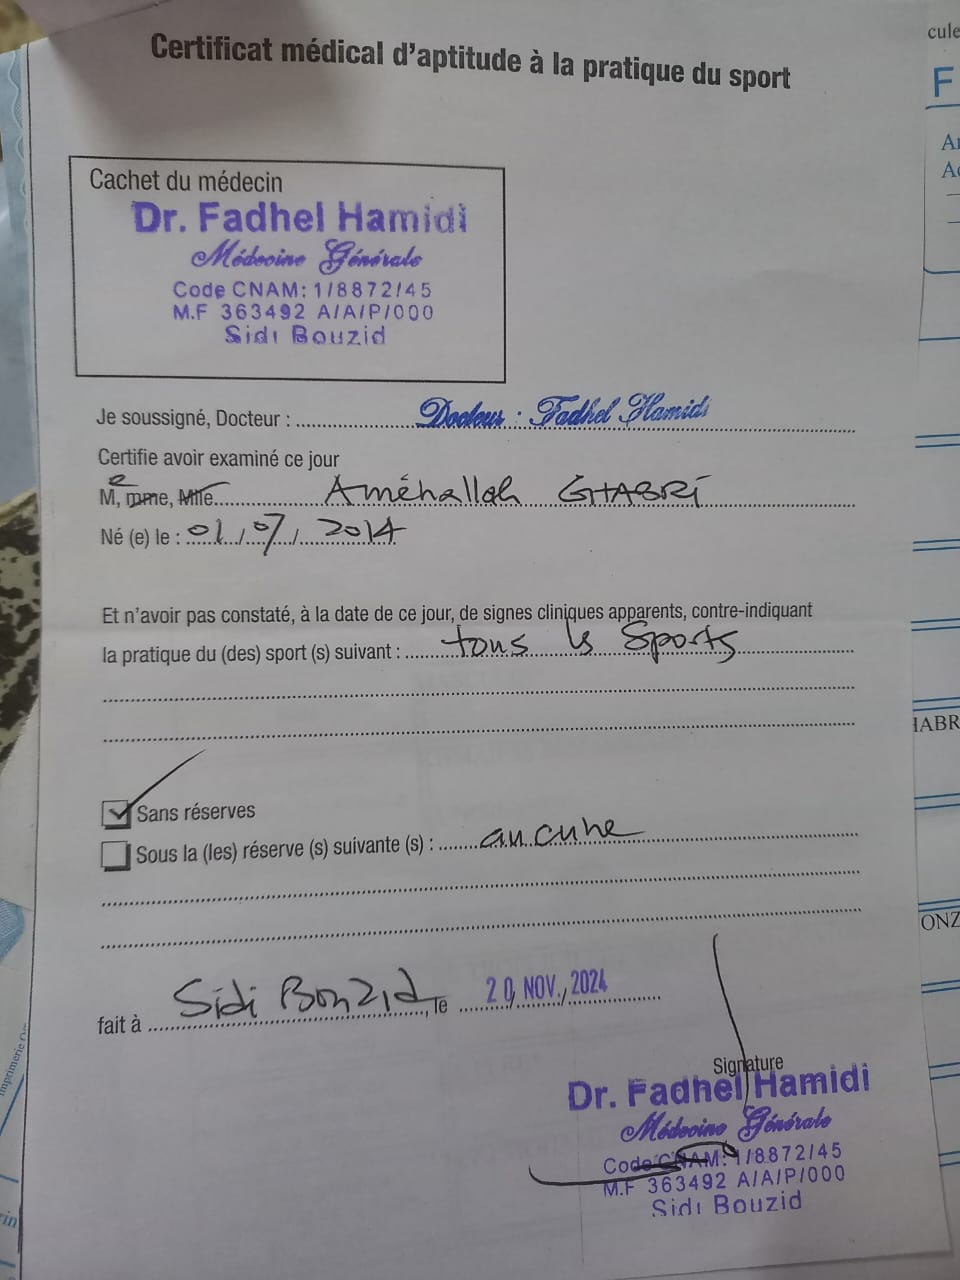 Certificat médical d'aptitude à la pratique du sport
Cachet du médecin
Dr. Fadhel Hamidi
Médecine Générale
Code CNAM: 1/8872/45
M.F 363492 A/A/P/000
Sidi Bouzid
Je soussigné, Docteur : Docteur : Fadhel Hamidi
Certifie avoir examiné ce jour
M, mme, Mlle Améhallah GHABRI
Né (e) le : 01/07/2014
Et n'avoir pas constaté, à la date de ce jour, de signes cliniques apparents, contre-indiquant
la pratique du (des) sport (s) suivant : tous les Sports
Sans réserves
Sous la (les) réserve (s) suivante (s) : aucune
fait à Sidi Bouzid, le 20 NOV. 2024
Signature
Dr. Fadhel Hamidi
Médecine Générale
Code CNAM: 1/8872/45
M.F 363492 A/A/P/000
Sidi Bouzid
cule
F
HABR
ONZ